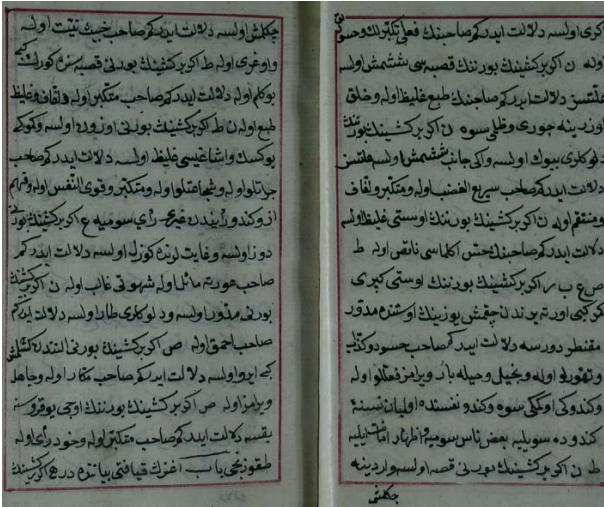 اكرى اولسه دلالت ايدركم صاحبنك فعلى تكبرلك وحسود
اوله ن اكر بركشينك بورننك قصبه سى ششمش اولسه
علتسز دلالت ايدركم صاحبنك طبع غليظ اوله وخلق
اوزرينه جورى وظلمى سوه ن اكر بركشينك بورننك
دلوكلرى بيوك اولسه واكى جانبى ششمش اولسه علتسز
دلالت ايدركم صاحب سريع الغضب اوله ومتكبر ولفاف
ومنتقم اوله ن اكر بركشينك بورننك اوستى غليظ اولسه
دلالت ايدركم صاحبنك حس اكلماسى ناقص اوله ط
ص ع ب ر اكر بركشينك بورننك اوستى كبرى
كركبى اورته يرندن چقمش يوزينك اوستنه مدور
مقنطر دورسه دلالت ايدركم صاحب حسود وكذاب
وتهورلو اوله وبخيللى وحيله باز ويرامز فعللو اوله
وكندوكى اوكمكى سوه وكندو نفسنده اوليان نسنه
كندوده سويليه بعض ناس سوميه واظهار ايليه
ط ن اكر بركشينك بورنى قصه اولسه واردينه
چكلمش
چكلمش اولسه دلالت ايدركم صاحب خبيث نيت اوله
واوغرى اوله ط اكر بركشينك بورنى قصبه سنده كورلسه
بوكلم اوله دلالت ايدركم صاحب متكبر اوله ولفاف وغليظ
طبع اوله ن ط اكر بركشينك بورنى اوزون اولسه وكوكه
يوكسك واشاغيسى غليظ اولسه دلالت ايدركم صاحب
جراتلو اوله وشجاعتلو اوله ومتكبر وقوى النفس اوله وفهم
از وكندو رأيندن غيرى رأى سوميه ع اكر بركشينك بورنى
دوز اولسه وغايت لرنده كوزل اولسه دلالت ايدركم
صاحب عورته مائل اوله شهوتى غالب اوله ن اكر بركشينك
بورنى مدور اولسه ودلوكلرى طار اولسه دلالت ايدركم
صاحب احمق اوله ص اكر بركشينك بورنى النندن كشلمش
كبى ايرو اولسه دلالت ايدركم صاحب مكار اوله وجاهل
ويرامز اوله ص اكر بركشينك بورننك اوجى يوقروسنه
بقسه دلالت ايدركم صاحب متكبر اوله وخود رأى اوله
طقوزنجى باب اغزك قيافتى بياننده در ع اكر بركشينك